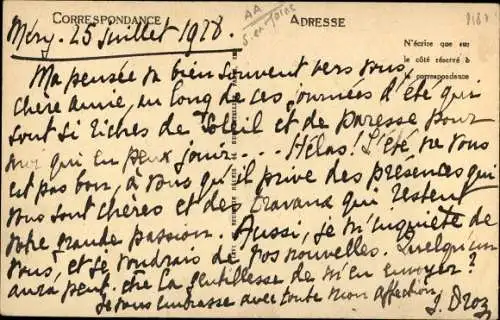 CORRESPONDANCE
ADRESSE
N'écrire que sur
le côté réservé à
la correspondance
Méry. 25 Juillet 1928.
Ma pensée va bien souvent vers vous,
chère amie, au long de ces journées d'été qui
sont si riches de soleil et de paresse pour
moi qui en peux jouir.... Hélas! L'été ne vous
est pas bon, à vous qu'il prive des présences qui
vous sont chères et des travaux qui restent
votre grande passion. Aussi, je m'inquiète de
vous, et je voudrais de vos nouvelles. Quelqu'un
aura peut-être la gentillesse de m'en envoyer?
Je vous embrasse avec toute mon affection,
J. Droz